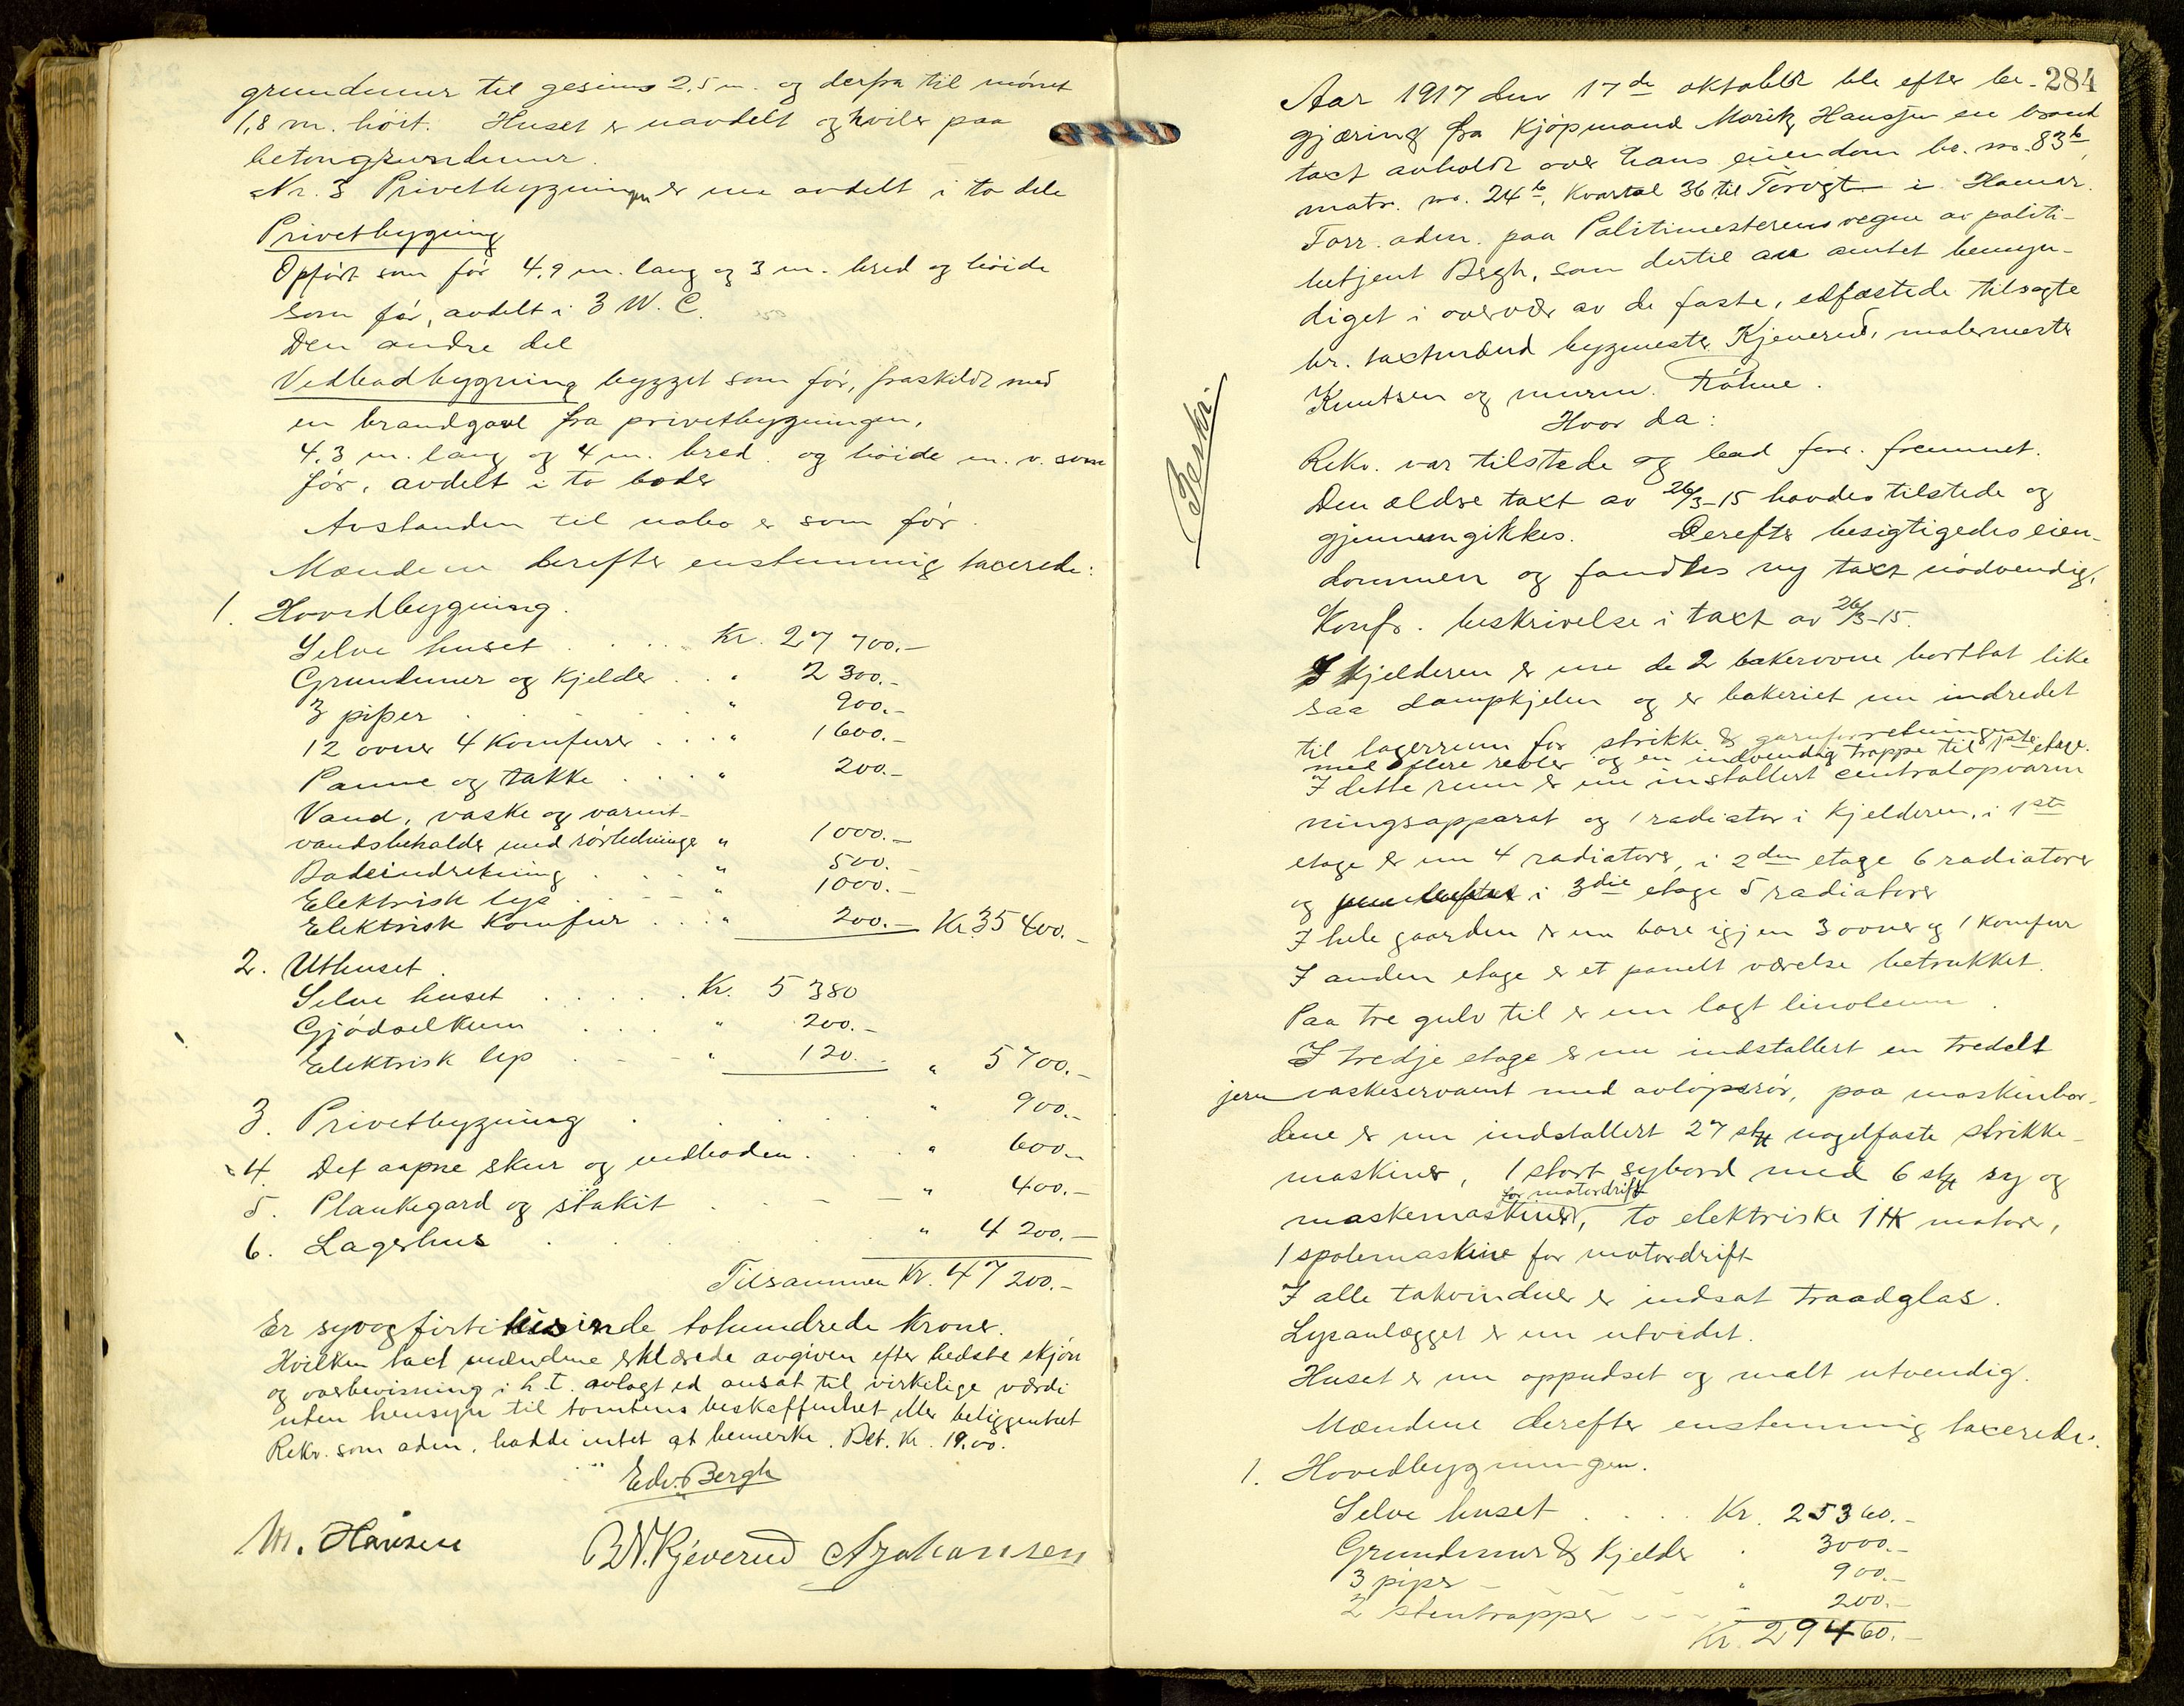 grundmur til gesims 2,5 m. og derfra til mønet
1,8 m. høit. Huset er uavdelt og hviler paa
betongrundmur.
Nr. 3 Privetbygningen er nu avdelt i to dele
Privetbygning
Opført som før 4,9 m. lang og 3 m. bred og høide
som før, avdelt i 3 W. C.
Den andre del
Vedbodbygning bygget som før, fraskildt med
en brandgavl fra privetbygningen,
4,3 m. lang og 4 m. bred og høide m. v. som
før, avdelt i to boder
Avstanden til nabo er som før.
Mændene derefter enstemmig taxerede:
1. Hovedbygning.
Selve huset . . . . Kr. 27 700.-
Grundmur og Kjelder . . " 2 300.-
3 piper . . . . " 900.-
12 ovner 4 Komfurer . . . " 1 600.-
Panne og takke . . . . " 200.-
Vand, vaske og varmt-
vandsbeholder med rørledninger " 1 000.-
Badeindretning . . . " 500.-
Elektrisk lys . - - " 1 000.-
Elektrisk Komfur . . . " 200.- Kr. 35 400.-
2. Uthuset.
Selve huset . . . . . Kr. 5 380
Gjødselkum . . . " 200.-
Elektrisk lys . - - " 120.- " 5 700.-
3. Privetbygning . . . . " 900.-
4. Det aapne skur og vedboden . . . " 600.-
5. Plankegard og stakit . . - - " 400.-
6. Lagerhus . . . . . " 4 200.-
Tilsammen Kr. 47 200.-
Er syvogfirtitusinde tohundrede Kroner.
Hvilken taxt mændene erklærede avgiven efter bedste skjøn
og overbevisning i h. t. avlagt ed ansat til virkelige værdi
uten hensyn til tomtens beskaffenhet eller beliggenhet
Rekv. som aden. hadde intet at bemerke. Bet. Kr. 19.00.
Edv. Bergh
M. Hansen B. N. Kjeverud A Johansen
284
Aar 1917 den 17de oktober ble efter be-
gjæring fra Kjøpmand Moritz Hansen en brand
taxt avholdt over hans eiendom br. no. 83b,
matr. no. 24b, Kvartal 36 til Torvgt i Hamar.
Forr. adm. paa Politimesterens vegne av politi-
betjent Bergh, som dertil av amtet bemyn-
diget i overvær av de faste, edfæstede tilsagte
br. taxtmænd bygmester Kjeverud, malermester
Knutsen og murm. Frøhne.
Hvor da:
Beskr.
Rekv. var tilstede og bad forr. fremmet.
Den ældre taxt av 26/3-15 havdes tilstede og
gjennemgikkes. Derefter besigtigedes eien-
dommen og fandtes ny taxt nødvendig.
Konfr. beskrivelse i taxt av 26/3-15.
I kjelderen er nu de 2 bakerovne borttat like
saa dampkjelen og er bakeriet nu indredet
til lagerrum for strikke & garnforretningen
med flere reoler og en indvendig trappe til 1ste etage.
I dette rum er nu installert centralopvarm
ningsapparat og 1 radiator i Kjelderen, i 1ste
etage er nu 4 radiatorer, i 2den etage 6 radiatorer
og i 3die etage 5 radiatorer
I hele gaarden er nu bare igjen 3 ovner og 1 komfur
I anden etage er et panelt værelse betrukket.
Paa tre gulv til er nu lagt linoleum.
I tredje etage er nu indstallert en tredelt
jern vaskeservamt med avløpsrør, paa maskinbor-
dene er nu indstallert 27 stk nagelfaste strikke-
maskiner, 1 stort sybord med 6 stk sy og
for motordrift
maskemaskiner, to elektriske 1 HK motorer,
1 spolemaskine for motordrift
I alle takvinduer er indsat traadglas.
Lysanlægget er nu utvidet.
Huset er nu oppudset og malt utvendig.
Mændene derefter enstemmig taxerede:
1. Hovedbygningen.
Selve huset . . . . Kr. 25 360.-
Grundmur & Kjelder . 3000.-
3 piper - - - " 900.-
2 stentrapper - - - - 200.-
Kr. 29 460.-